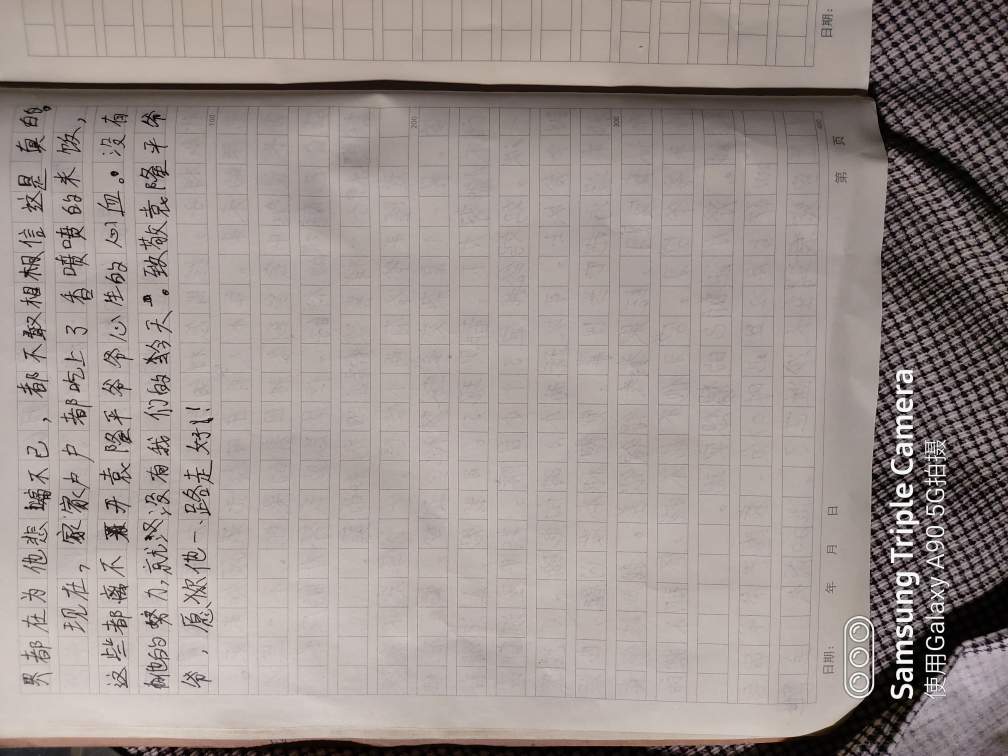 界都在为他悲不已，都不敢相信这是真的。
现在，家家户户都吃上了香喷喷的米饭，
这些都离不开袁隆平爷爷心生的心血。没有
他的努力，就没有我们的今天。致敬袁隆平爷
爷，愿您他一路走好！！
100
200
300
400
第 页
日期： 年 月 日
日期：
Samsung Triple Camera
使用Galaxy A90 5G拍摄